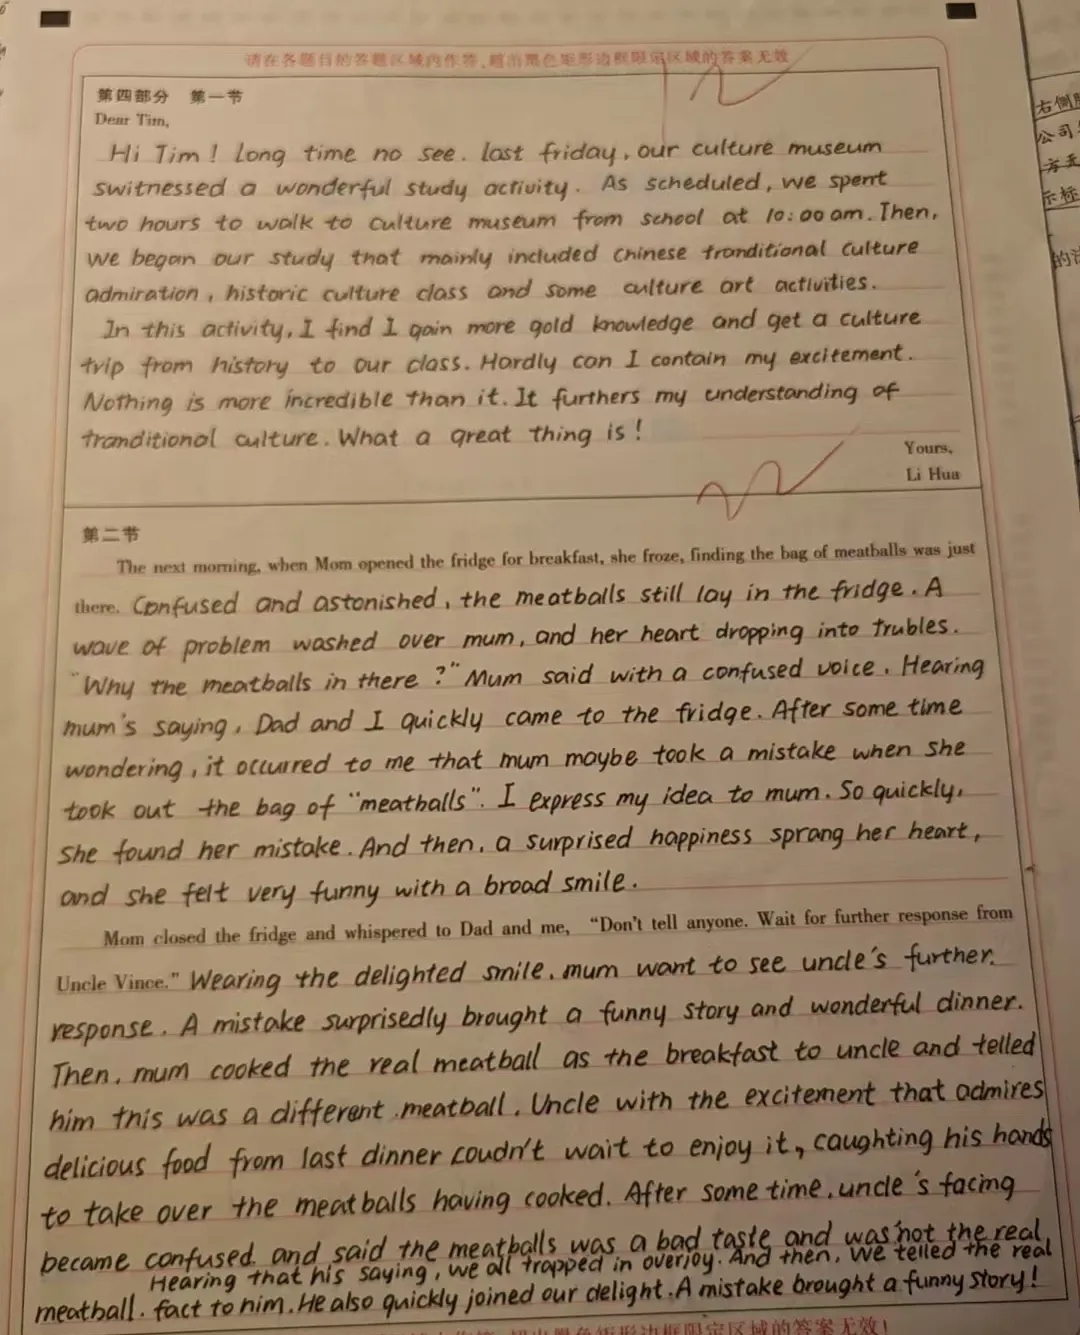 请在各题目的答题区域内作答，超出黑色矩形边框限定区域的答案无效
12
第四部分 第一节
Dear Tim,
Hi Tim! long time no see. last friday, our culture museum
switnessed a wonderful study activity. As scheduled, we spent
two hours to walk to culture museum from school at 10:00 am. Then,
we began our study that mainly included Chinese tranditional culture
admiration, historic culture class and some culture art activities.
In this activity, I find I gain more gold knowledge and get a culture
trip from history to our class. Hardly can I contain my excitement.
Nothing is more incredible than it. It furthers my understanding of
tranditional culture. What a great thing is!
Yours,
Li Hua
第二节
The next morning, when Mom opened the fridge for breakfast, she froze, finding the bag of meatballs was just
there. Confused and astonished, the meatballs still lay in the fridge. A
wave of problem washed over mum, and her heart dropping into trubles.
"Why the meatballs in there?" Mum said with a confused voice. Hearing
mum's saying, Dad and I quickly came to the fridge. After some time
wondering, it occurred to me that mum maybe took a mistake when she
took out the bag of "meatballs". I express my idea to mum. So quickly,
she found her mistake. And then, a surprised happiness sprang her heart,
and she felt very funny with a broad smile.
Mom closed the fridge and whispered to Dad and me, "Don't tell anyone. Wait for further response from
Uncle Vince." Wearing the delighted smile, mum want to see uncle's further
response. A mistake surprisedly brought a funny story and wonderful dinner.
Then, mum cooked the real meatball as the breakfast to uncle and telled
him this was a different meatball. Uncle with the excitement that admires
delicious food from last dinner coudn't wait to enjoy it, caughting his hands
to take over the meatballs having cooked. After some time, uncle's facing
became confused and said the meatballs was a bad taste and was not the real
meatball. Hearing that his saying, we all trapped in overjoy. And then, we telled the real
fact to him. He also quickly joined our delight. A mistake brought a funny story!
右侧
公司
示标